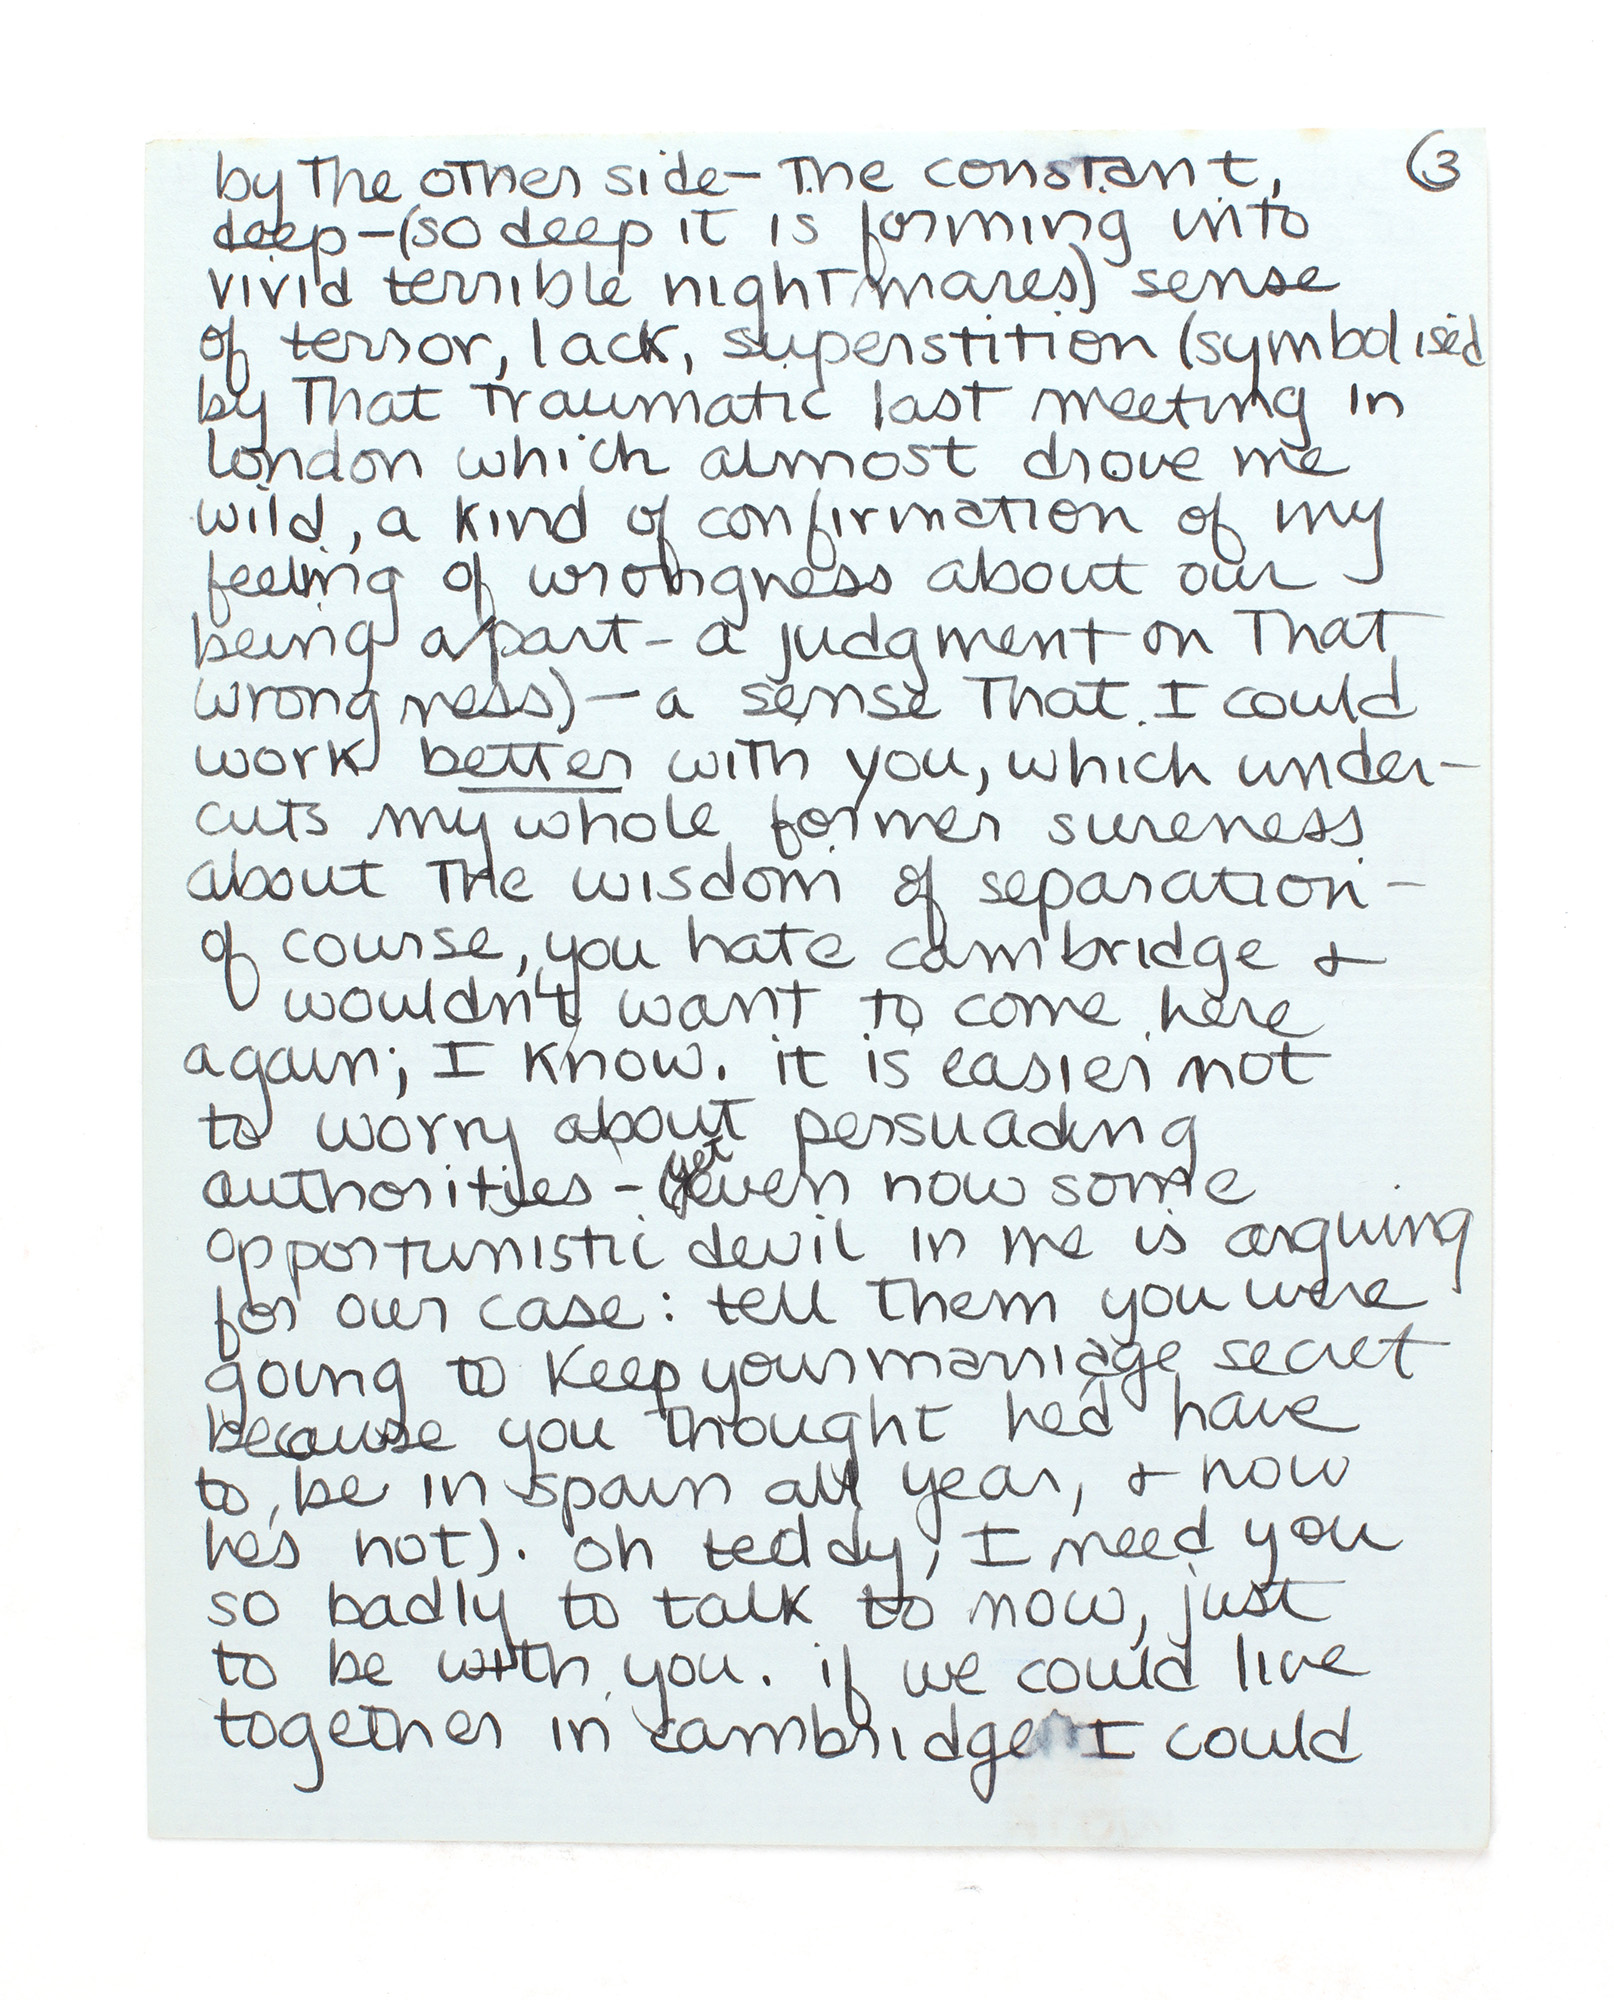 by the other side – the constant, (3
deep – (so deep it is forming into
vivid terrible nightmares) sense
of terror, lack, superstition (symbolised
by that traumatic last meeting in
london which almost drove me
wild, a kind of confirmation of my
feeling of wrongness about our
being apart – a judgment on that
wrongness) – a sense that I could
work better with you, which under-
cuts my whole former sureness
about the wisdom of separation –
of course, you hate cambridge &
wouldn't want to come here
again; I know. it is easier not
to worry about persuading
authorities – (yet even now some
opportunistic devil in me is arguing
for our case: tell them you were
going to keep your marriage secret
because you thought he'd have
to be in spain all year, & now
he's not). oh teddy, I need you
so badly to talk to now, just
to be with you. if we could live
together in cambridge I could